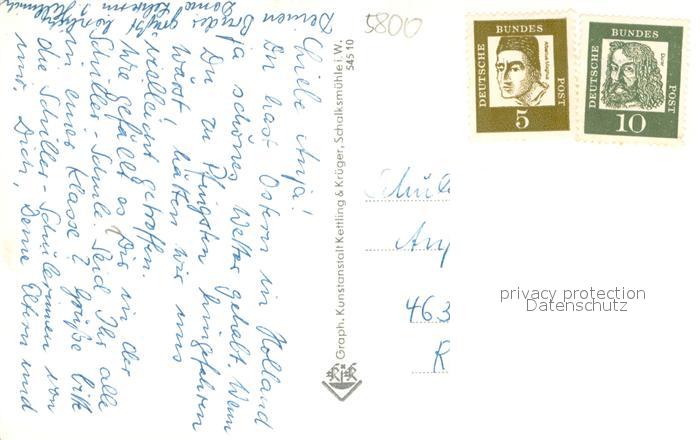 Liebe Anja!
Du hast Ostern in Holland
ja schönes Wetter gehabt. Wenn
Du zu Pfingsten hingefahren
wärst, hätten wir uns
vielleicht getroffen.
Wie gefällt es Dir in der
Schiller-Schule. Seid Ihr alle
in einer Klasse? Grüße bitte
die Schiller-Schülerinnen von
mir, Dich, Deine Eltern und
Deinen Bruder grüßt herzlich
Deine Lehrerin
Graph. Kunstanstalt Kettling & Krüger, Schalksmühle i. W.
54510
KK
5800
DEUTSCHE BUNDES POST
Albertus Magnus
5
DEUTSCHE BUNDES POST
Dürer
10
Schül
An
463
privacy protection
Datenschutz